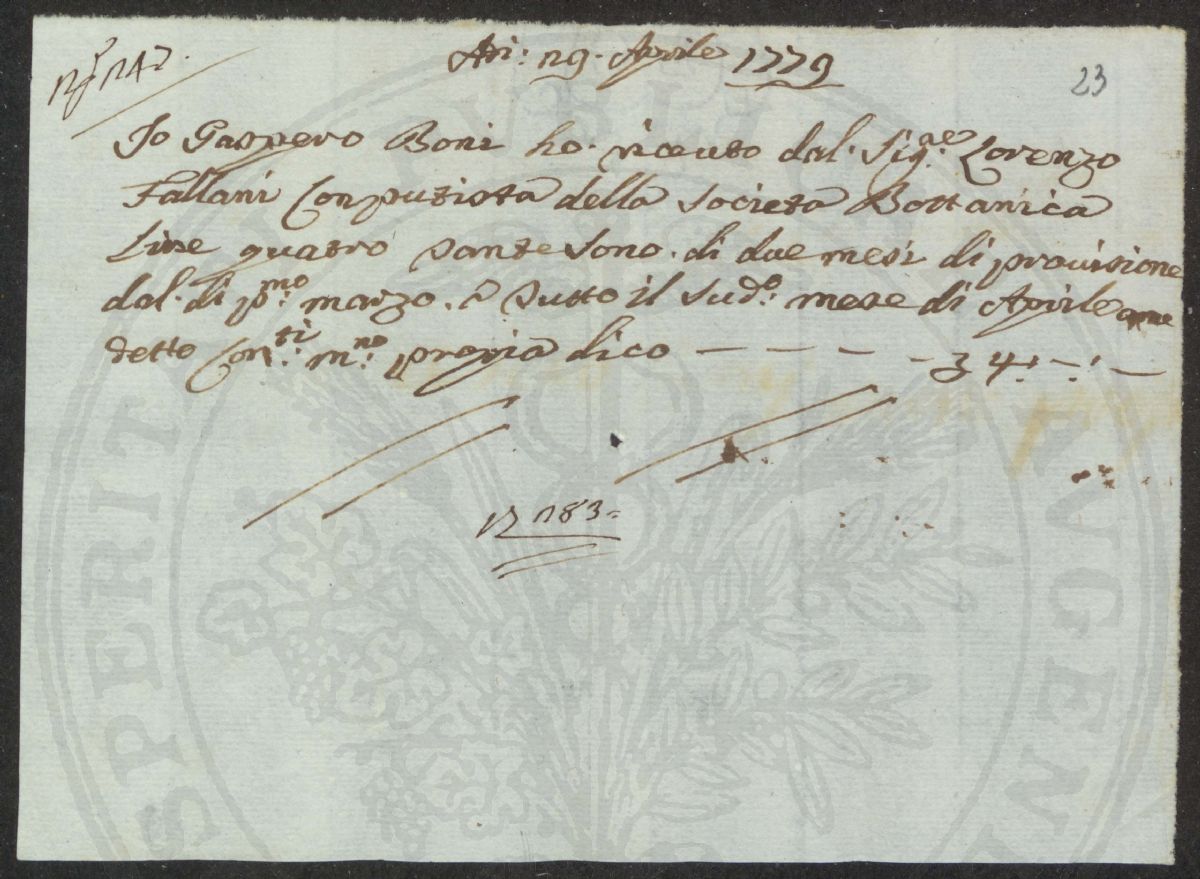 Adi: 29. Aprile 1779
23
Io Gaspero Boni ho. riceuto dal. Sig.re Lorenzo
Fallani Conputista della Società Bottanica
Lire quatro Dante Sono. di due mesi di prouisione
dal. di p.mo marzo. a Dutto il Sud.o mese di Aprile
detto Con.ti m.no propria dico — — — — - 3 4:-:-
183
SPERITATI PVBLICAE AVGEN